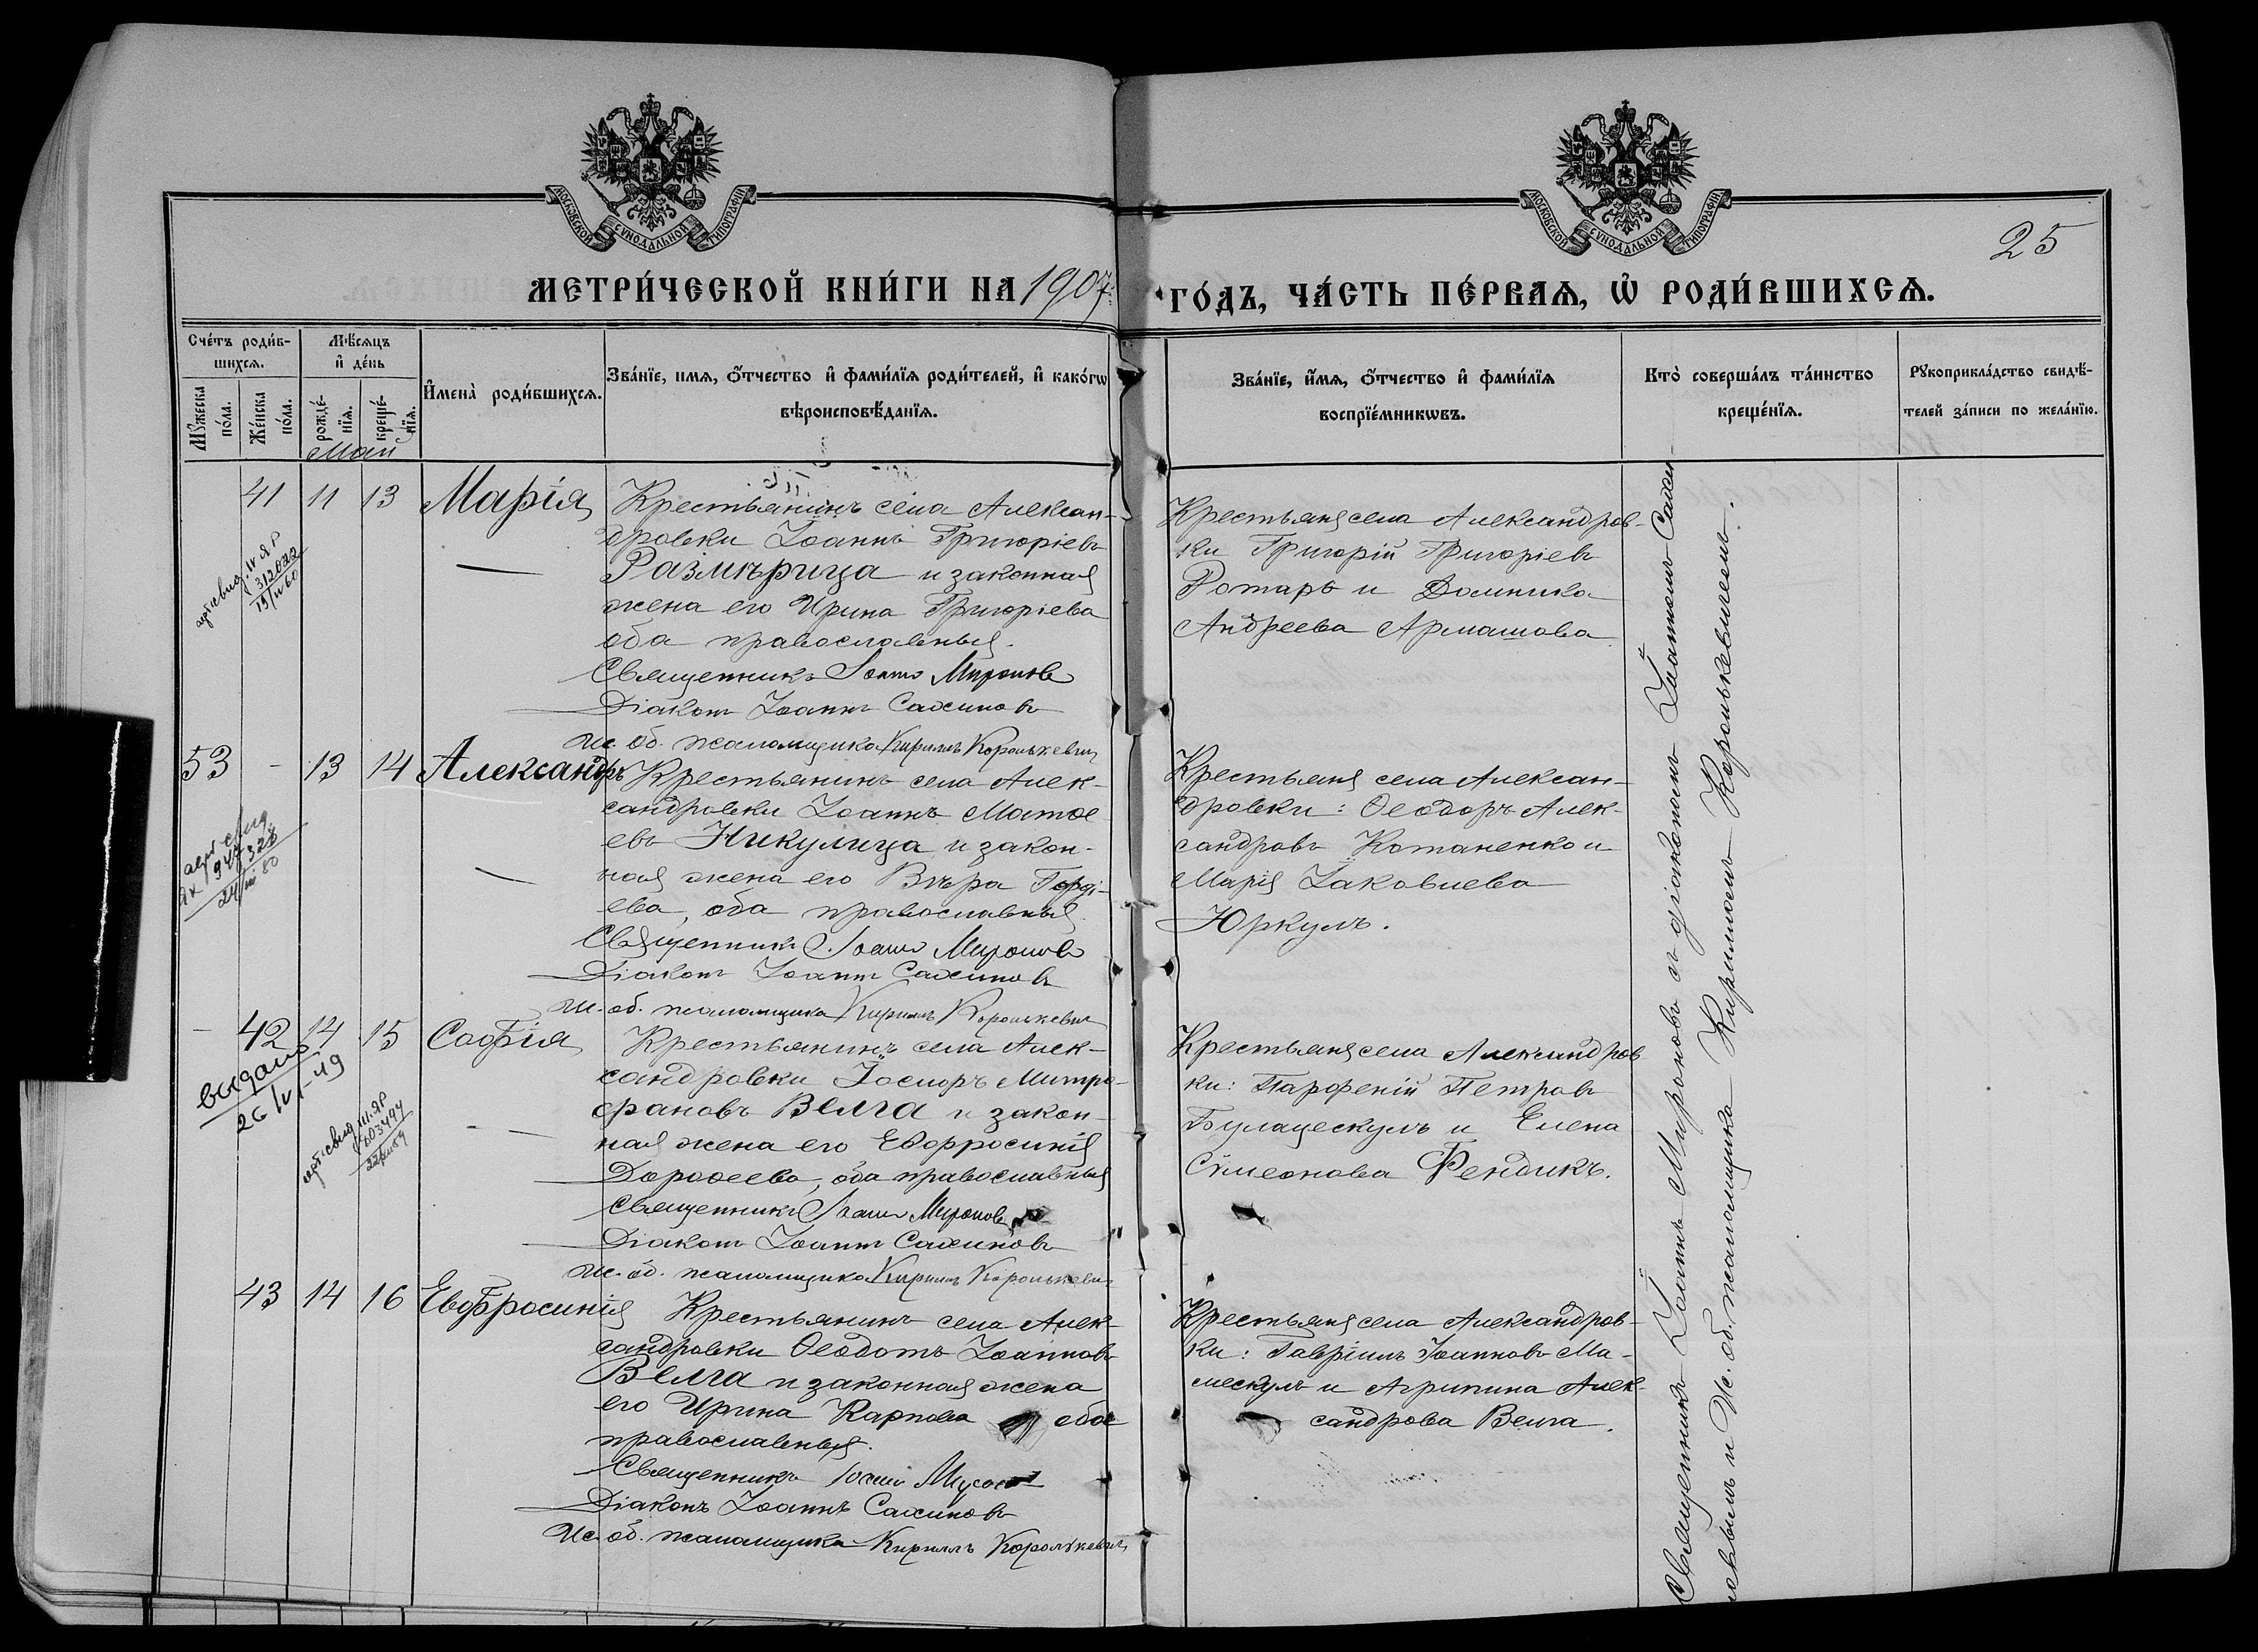 МОСКОВСКОЙ СѴНОДАЛЬНОЙ ТИПОГРАФІИ
МОСКОВСКОЙ СѴНОДАЛЬНОЙ ТИПОГРАФІИ
25
МЕТРИ́ЧЕСКОЙ КНИ́ГИ НА 1907
ГО́ДЪ, ЧА́СТЬ ПЕ́РВАѦ, Ѽ РОДИ́ВШИХСѦ.
Сче́тъ роди́в-
шихсѧ.
Мꙋ́жеска по́ла.
Же́нска по́ла.
Мѣ́сѧцъ
и҆ де́нь
рожде́-нїѧ.
креще́-нїѧ.
И҆мена̀ роди́вшихсѧ.
Зва́нїе, имѧ, ѻ҆́тчество и҆ фами́лїѧ роди́телей, и҆ како́гѡ
вѣроисповѣ́данїѧ.
Зва́нїе, и҆́мѧ, ѻ҆́тчество и҆ фами́лїѧ
воспрїе́мникѡвъ.
Кто̀ соверша́лъ та́инство
креще́нїѧ.
Рꙋкоприкла́дство свидѣ́-
телей за́писи по жела́нїю.
Май
41 11 13 Марія
Крестьянинъ села Алексан-
дровки Іоаннъ Григоріевъ
Размѣрица и законная
жена его Ирина Григоріева
оба православныя.
Священникъ Іоаннъ Мироновъ
Діаконъ Іоаннъ Сахиновъ
Ис. об. псаломщика Кириллъ Королькевич
Крестьяня села Александров-
ки Григорій Григоріев
Ротарь и Домника
Андреева Армашова
312022
53 - 13 14 Александръ
Крестьянинъ села Алек-
сандровки Іоаннъ Матѳе
евъ Никулица и закон-
ная жена его Вѣра Горді-
ева, оба православныя.
Священникъ Іоаннъ Мироновъ
Діаконъ Іоаннъ Сахиновъ
Ис. об. псаломщика Кириллъ Королькевич
Крестьяня села Алексан-
дровки: Ѳеодоръ Алек-
сандровъ Котаненко и
Марія Іаковлева
Юркулъ.
- 42 14 15 Софія
Крестьянинъ села Алек-
сандровки Іосифъ Митро-
фановъ Велга и закон-
ная жена его Евфросинія
Дороѳеева, оба православныя
Священникъ Іоаннъ Мироновъ
Діаконъ Іоаннъ Сахиновъ
Ис. об. псаломщика Кириллъ Королькевич
Крестьяня села Александров
ки: Парфеній Петровъ
Булацескулъ и Елена
Сѵмеонова Фендикъ.
выдано
26/VI-49
43 14 16 Евфросинія
Крестьянинъ села Алек-
сандровки Ѳеодотъ Іоанновъ
Велга и законная жена
его Ирина Карпова оба
православныя.
Священникъ Іоаннъ
Діаконъ Іоаннъ Сахиновъ
Ис. об. псаломщика Кириллъ Королькевич
Крестьяня села Александров-
ки: Гавріилъ Іоанновъ Ма-
мескулъ и Агрипина Алек-
сандрова Велга.
Священникъ Іоаннъ Мироновъ с діакономъ Іоанномъ Сахи-
новымъ и Ис. об. псаломщика Кирилломъ Королькевичемъ.